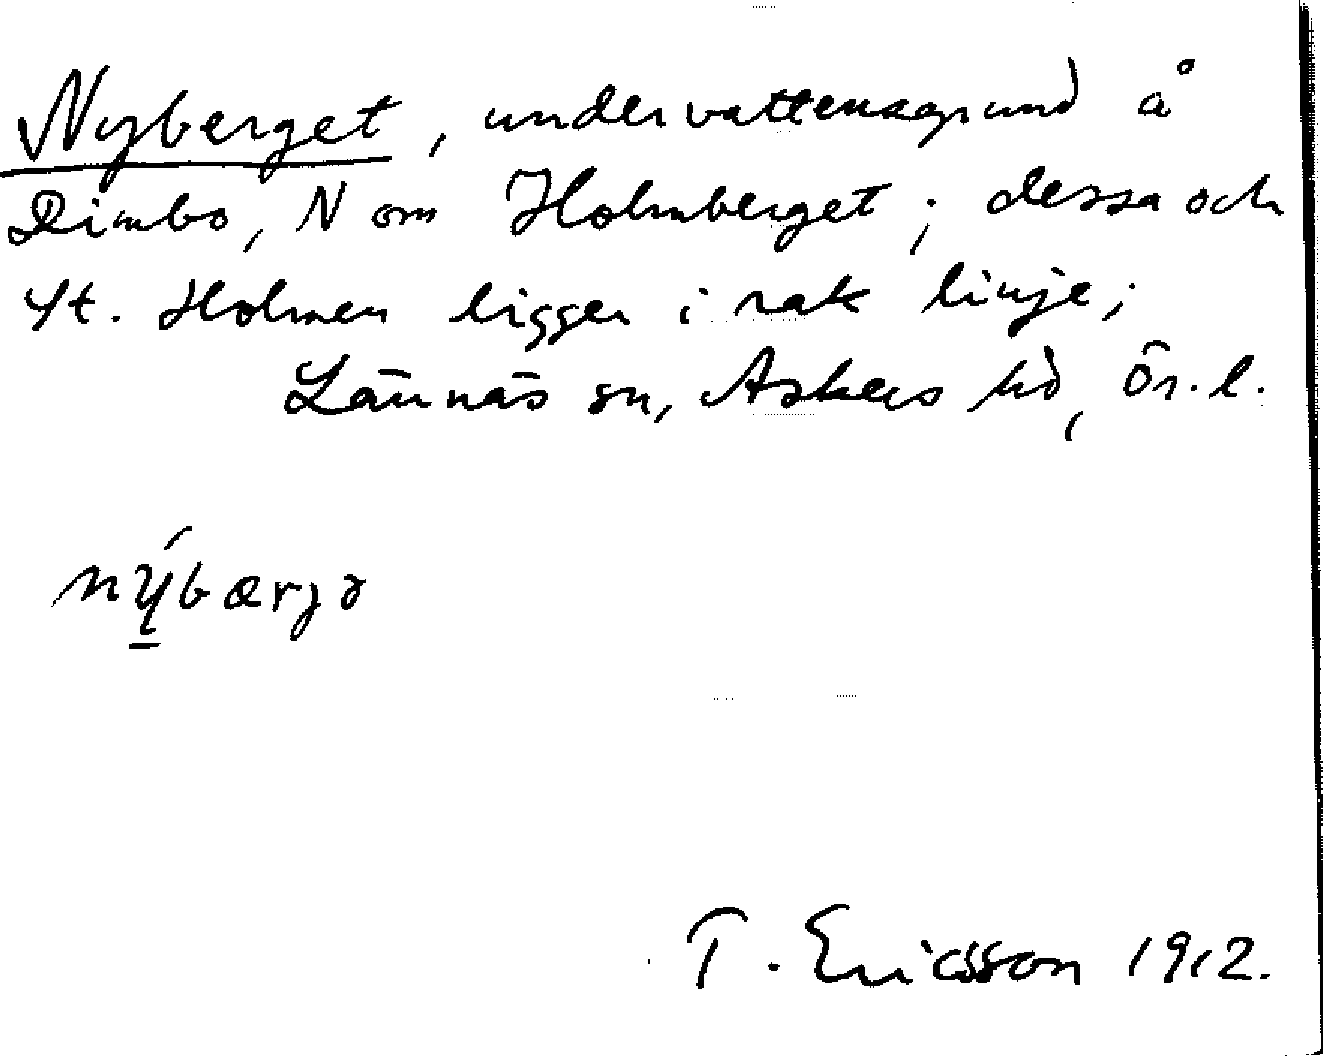 Nyberget, undervattensgrund å
Dimbo, N om Holmberget; dessa och
St. Holmen ligger i rak linje;
Lännäs sn, Askers hd, Ör. l.
nýbærjə
T. Ericsson 1912.